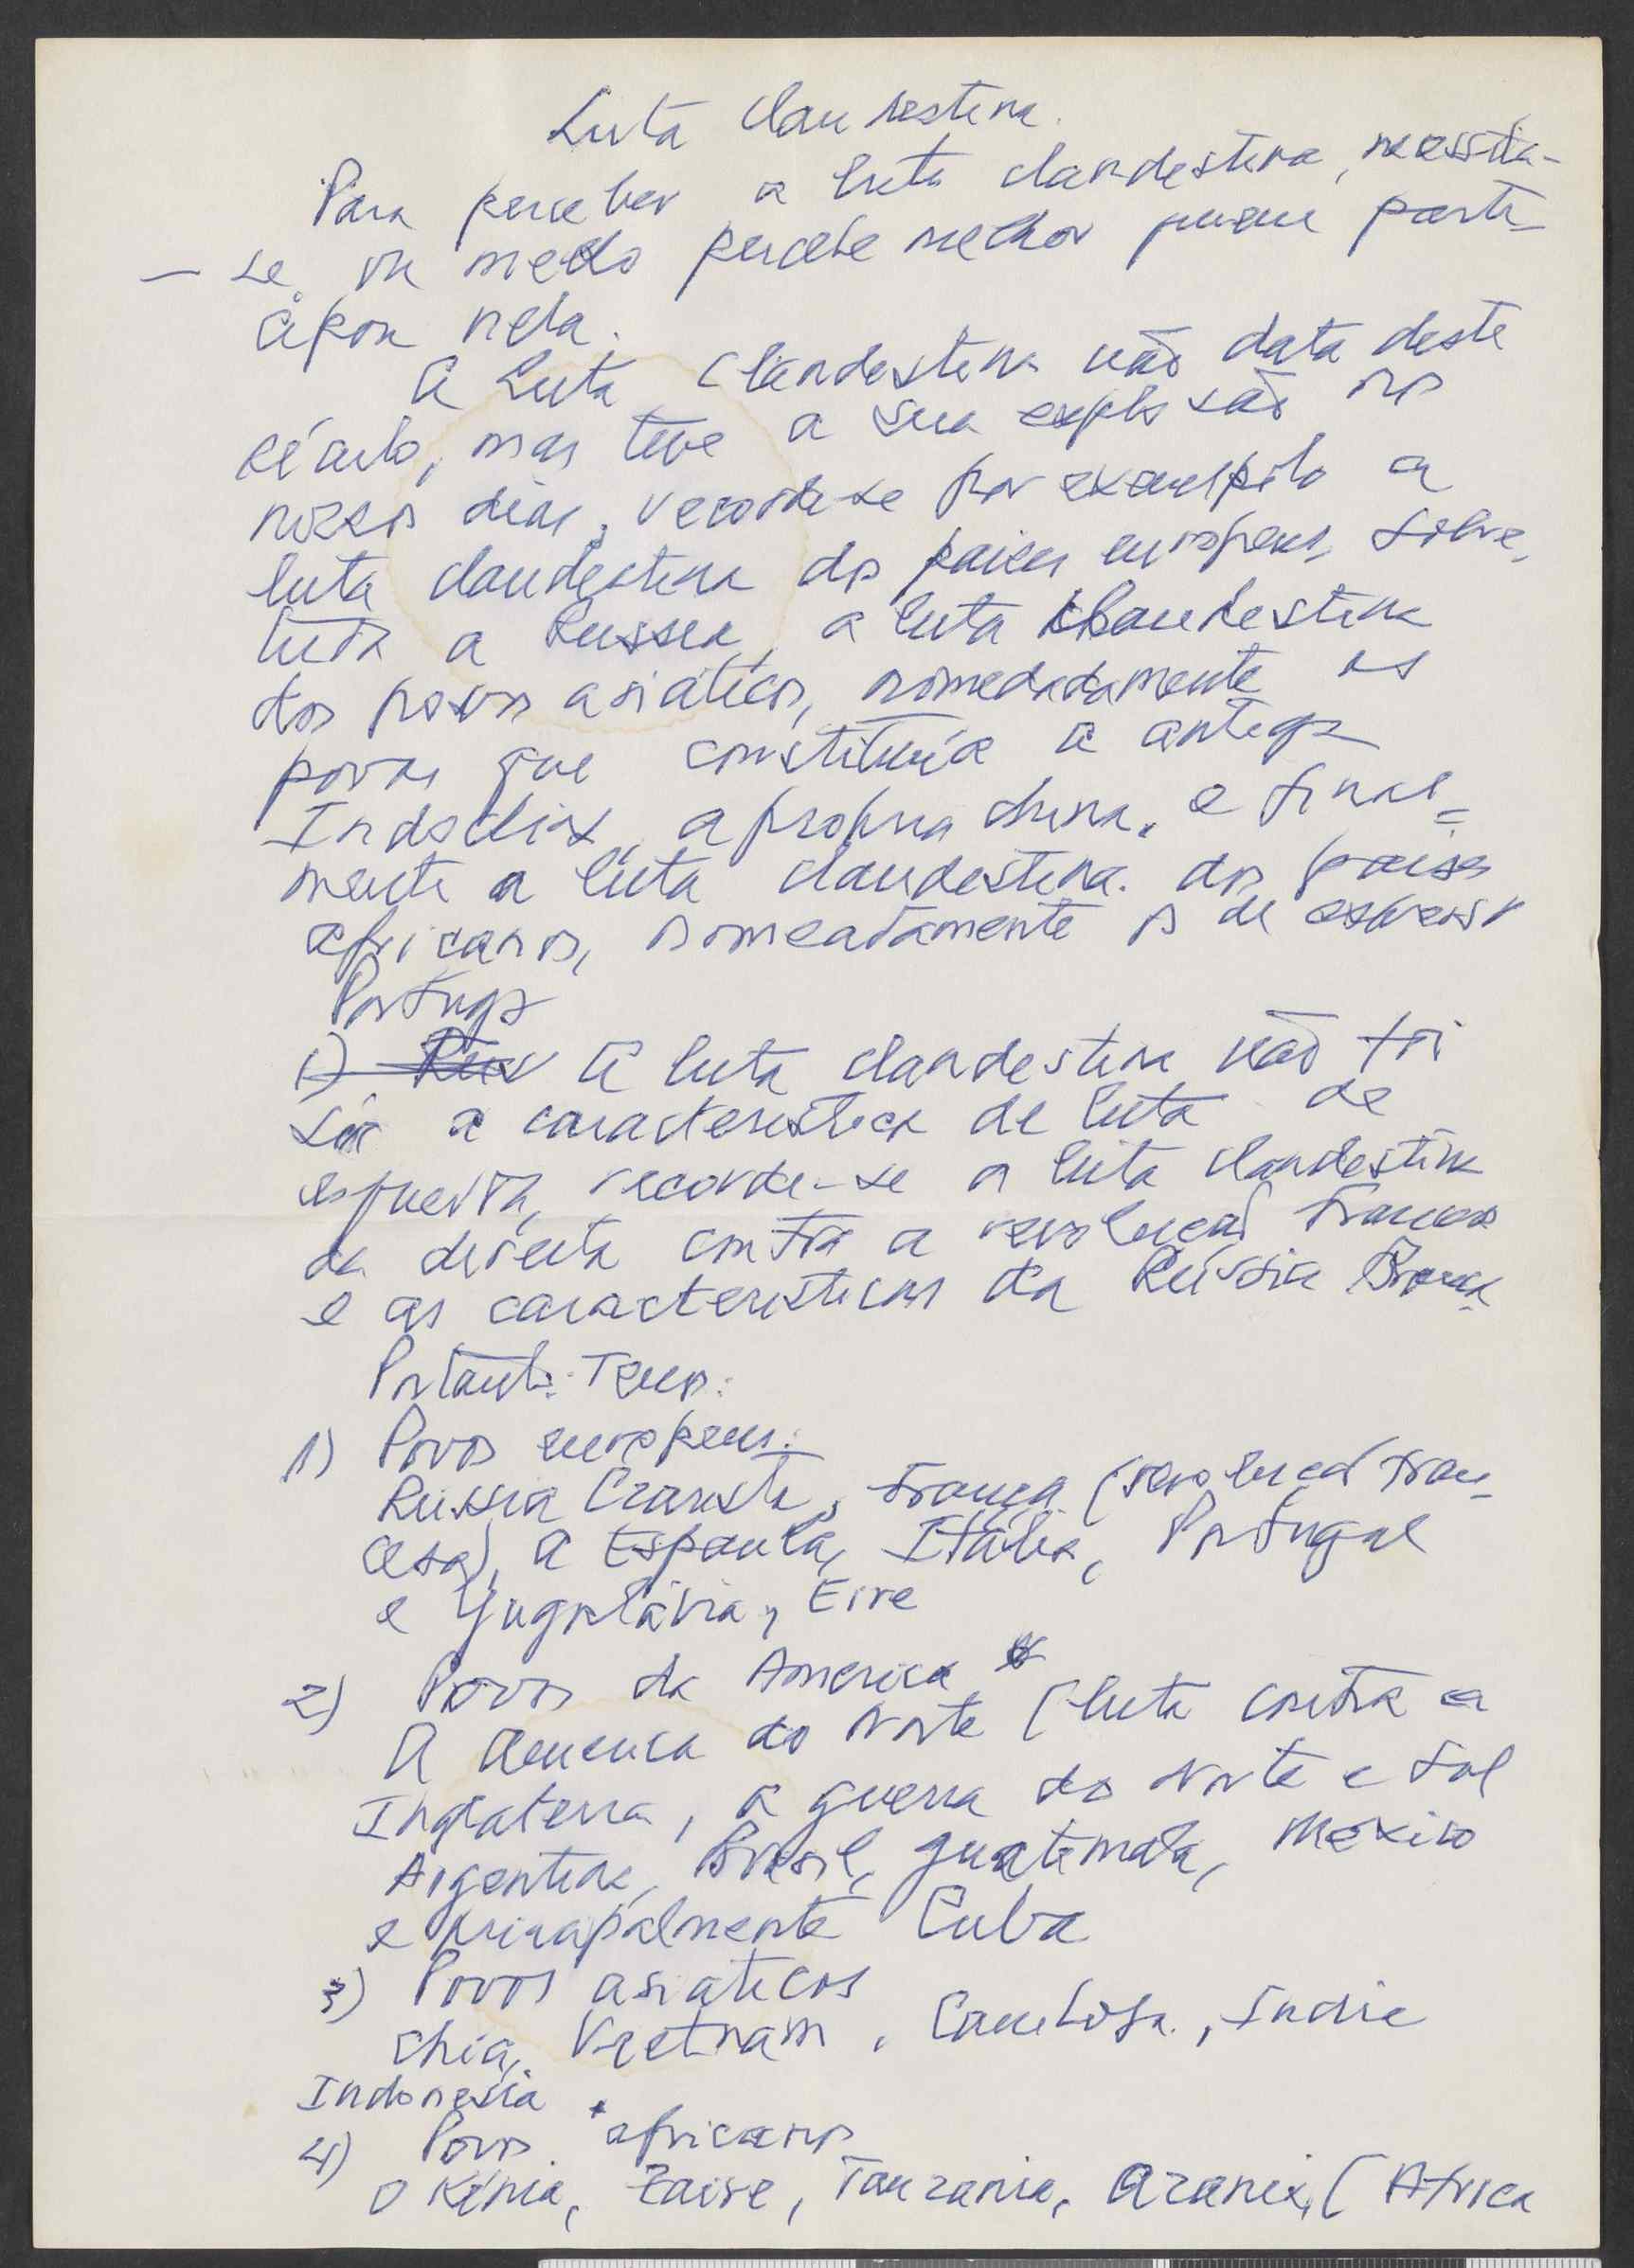 Luta clandestina.
Para perceber a luta clandestina, necessita-
- se, ou melho percebe melhor quem parti-
cipou nela.
A Luta Clandestina não data deste
século, mas teve a sua explosão nos
nossos dias, recorde-se por exemplo a
luta clandestina dos paises europeus, sobre,
tudo a Russia, a luta clandestina
dos povos asiáticos, nomedadamente os
povos que constituia a antiga
Indochina, a propria china, e final=
mente a luta clandestina. dos paises
africanos, nomeadamente os de expressão
Portugs
1) Rus A luta clandestina não foi
só a caracteristica de luta de
esquerda, recorde-se a luta clandestina
da direita contra a revolução francesa
e as caracteristicas da Rússia Branca
Portanto: Temos:
1) Povos europeus:
Russia Czarista, França (revolução fran-
cesa), a Espanha, Itália, Portugal
e Yugoslávia, Eire
2) Povos da America
A America do Norte (luta contra a
Inglaterra, a guerra do Norte e Sul
Argentina, Brasil, Guatemala, Mexico
e principalmente Cuba
3) Povos asiaticos
Chia, Vietnam, Cambosa., India
Indonesia.
4) Povos africanos
O Kénia, Zaire, Tanzania, Azania, (Africa